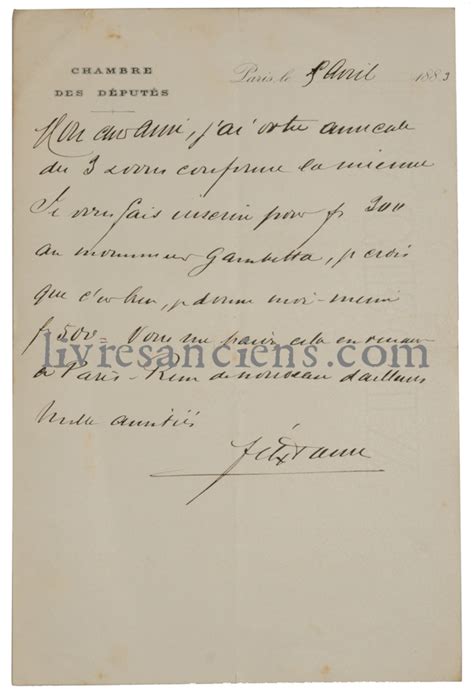 CHAMBRE
DES DÉPUTÉS
Paris, le 5 Avril 1883
Mon cher ami, j'ai votre amicale
du 3 vous confirme la mienne
Je vous fais inscrire pour fr 300
au monument Gambetta, je crois
que c'est bien, je donne moi-même
f 500 = Vous me paierez cela en venant
livresanciens.com
à Paris - Rien de nouveau d'ailleurs
Mille amitiés
Félix Faure